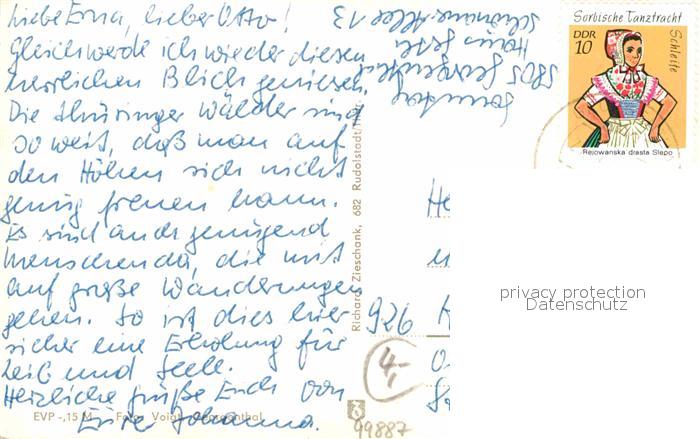 Liebe Erna, lieber Otto!
Gleich werde ich wieder diesen
herrlichen Blick geniesen.
Die Thüringer Wälder sind
so weit, daß man auf
den Höhen sich nicht
genug freuen kann.
Es sind auch genügend
Menschen da, die mit
auf große Wanderungen
gehen. So ist dies hier
sicher eine Erholung für
Leib und Seele.
Herzliche Grüße Euch von
Eure Johanna.
EVP -,15 M Foto: Voigt,
Schöne Allee 13
Haus
5805
Richard Zieschank, 682 Rudolstadt/Thür.
Sorbische Tanztracht
DDR
10
Schleife
Rejowanska drasta Slepo
He
u
926
4,-
99887
privacy protection
Datenschutz